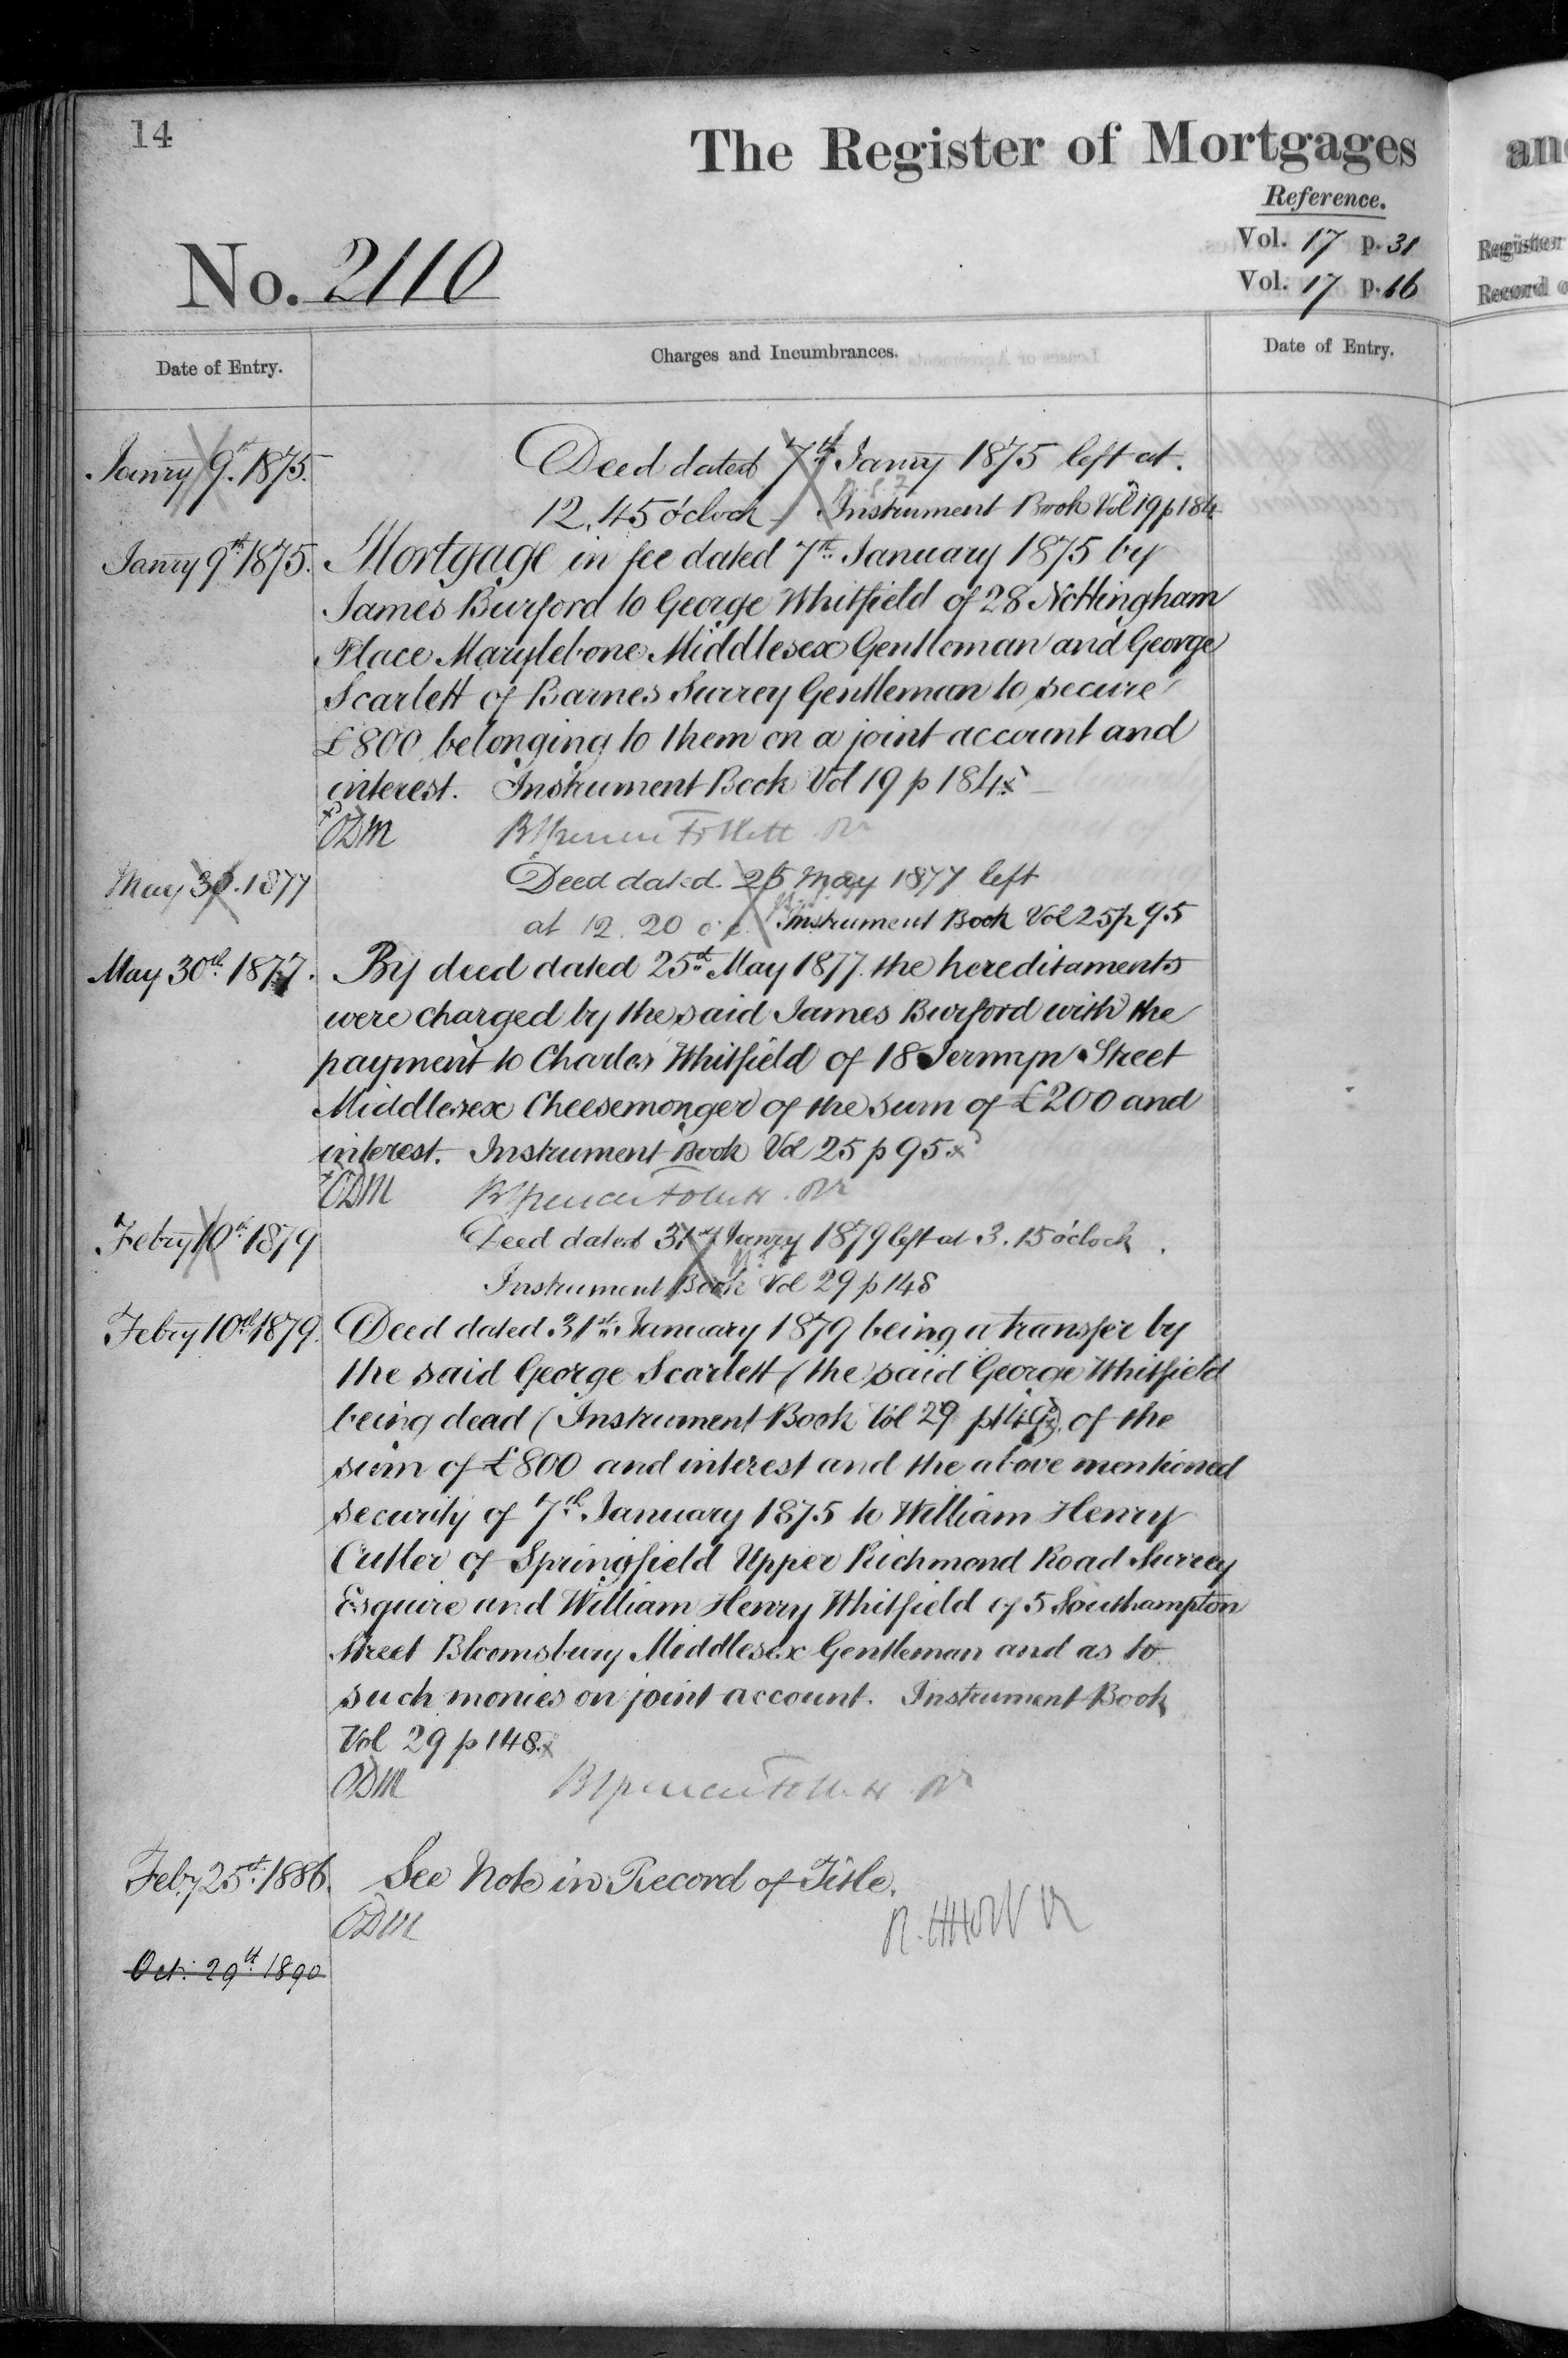 14
The Register of Mortgages
Reference.
Vol. 17 p. 31
Vol. 17 p. 16
No. 2110
Date of Entry.
Charges and Incumbrances.
Date of Entry.
Janry 9th 1875.
Deed dated 7th Janry 1875 left at
12.45 o'clock Instrument Book Vol 19 p 184
Janry 9th 1875.
Mortgage in fee dated 7th January 1875 by
James Burford to George Whitfield of 28 Nottingham
Place Marylebone Middlesex Gentleman and George
Scarlett of Barnes Surrey Gentleman to secure
£800 belonging to them on a joint account and
interest. Instrument Book Vol 19 p 184 x
x ODM
May 30. 1877
Deed dated 25 May 1877 left
at 12.20 o'c. Instrument Book Vol 25 p 95
May 30th 1877.
By deed dated 25th May 1877 the hereditaments
were charged by the said James Burford with the
payment to Charles Whitfield of 18 Jermyn Street
Middlesex Cheesemonger of the sum of £200 and
interest. Instrument Book Vol 25 p 95 x
x ODM
Febry 10th 1879
Deed dated 31st Janry 1879 left at 3.15 o'clock.
Instrument Book Vol 29 p 148
Febry 10th 1879.
Deed dated 31st January 1879 being a transfer by
the said George Scarlett (the said George Whitfield
being dead (Instrument Book Vol 29 p 149) of the
sum of £800 and interest and the above mentioned
security of 7th January 1875 to William Henry
Cutler of Springfield Upper Richmond Road Surrey
Esquire and William Henry Whitfield of 5 Southampton
Street Bloomsbury Middlesex Gentleman and as to
such monies on joint account. Instrument Book
Vol 29 p 148. x
ODM
Feby 25th 1886.
See Note in Record of Title.
ODM
Oct. 29th 1890
an
Register
Record o